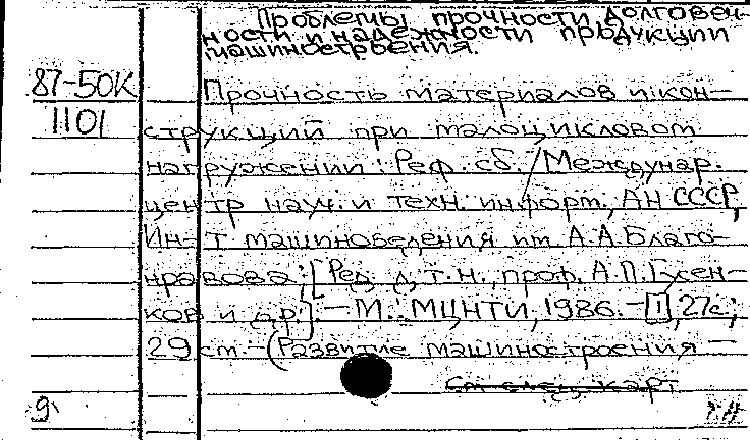 Проблемы прочности, долговеч-
ности и надежности продукции
машиностроения.
87-50К Прочность материалов и кон-
1101 струкций при малоцикловом
нагружении: Реф. сб. / Междунар.
центр науч. и техн. информ., АН СССР,
Ин-т машиноведения им. А.А. Благо-
нравова; [Ред. д.т.н., проф. А.П. Гусен-
ков и др.]. - М.: МЦНТИ, 1986. - [1], 27 с.;
29 см. - (Развитие машиностроения -
см след. карт
9